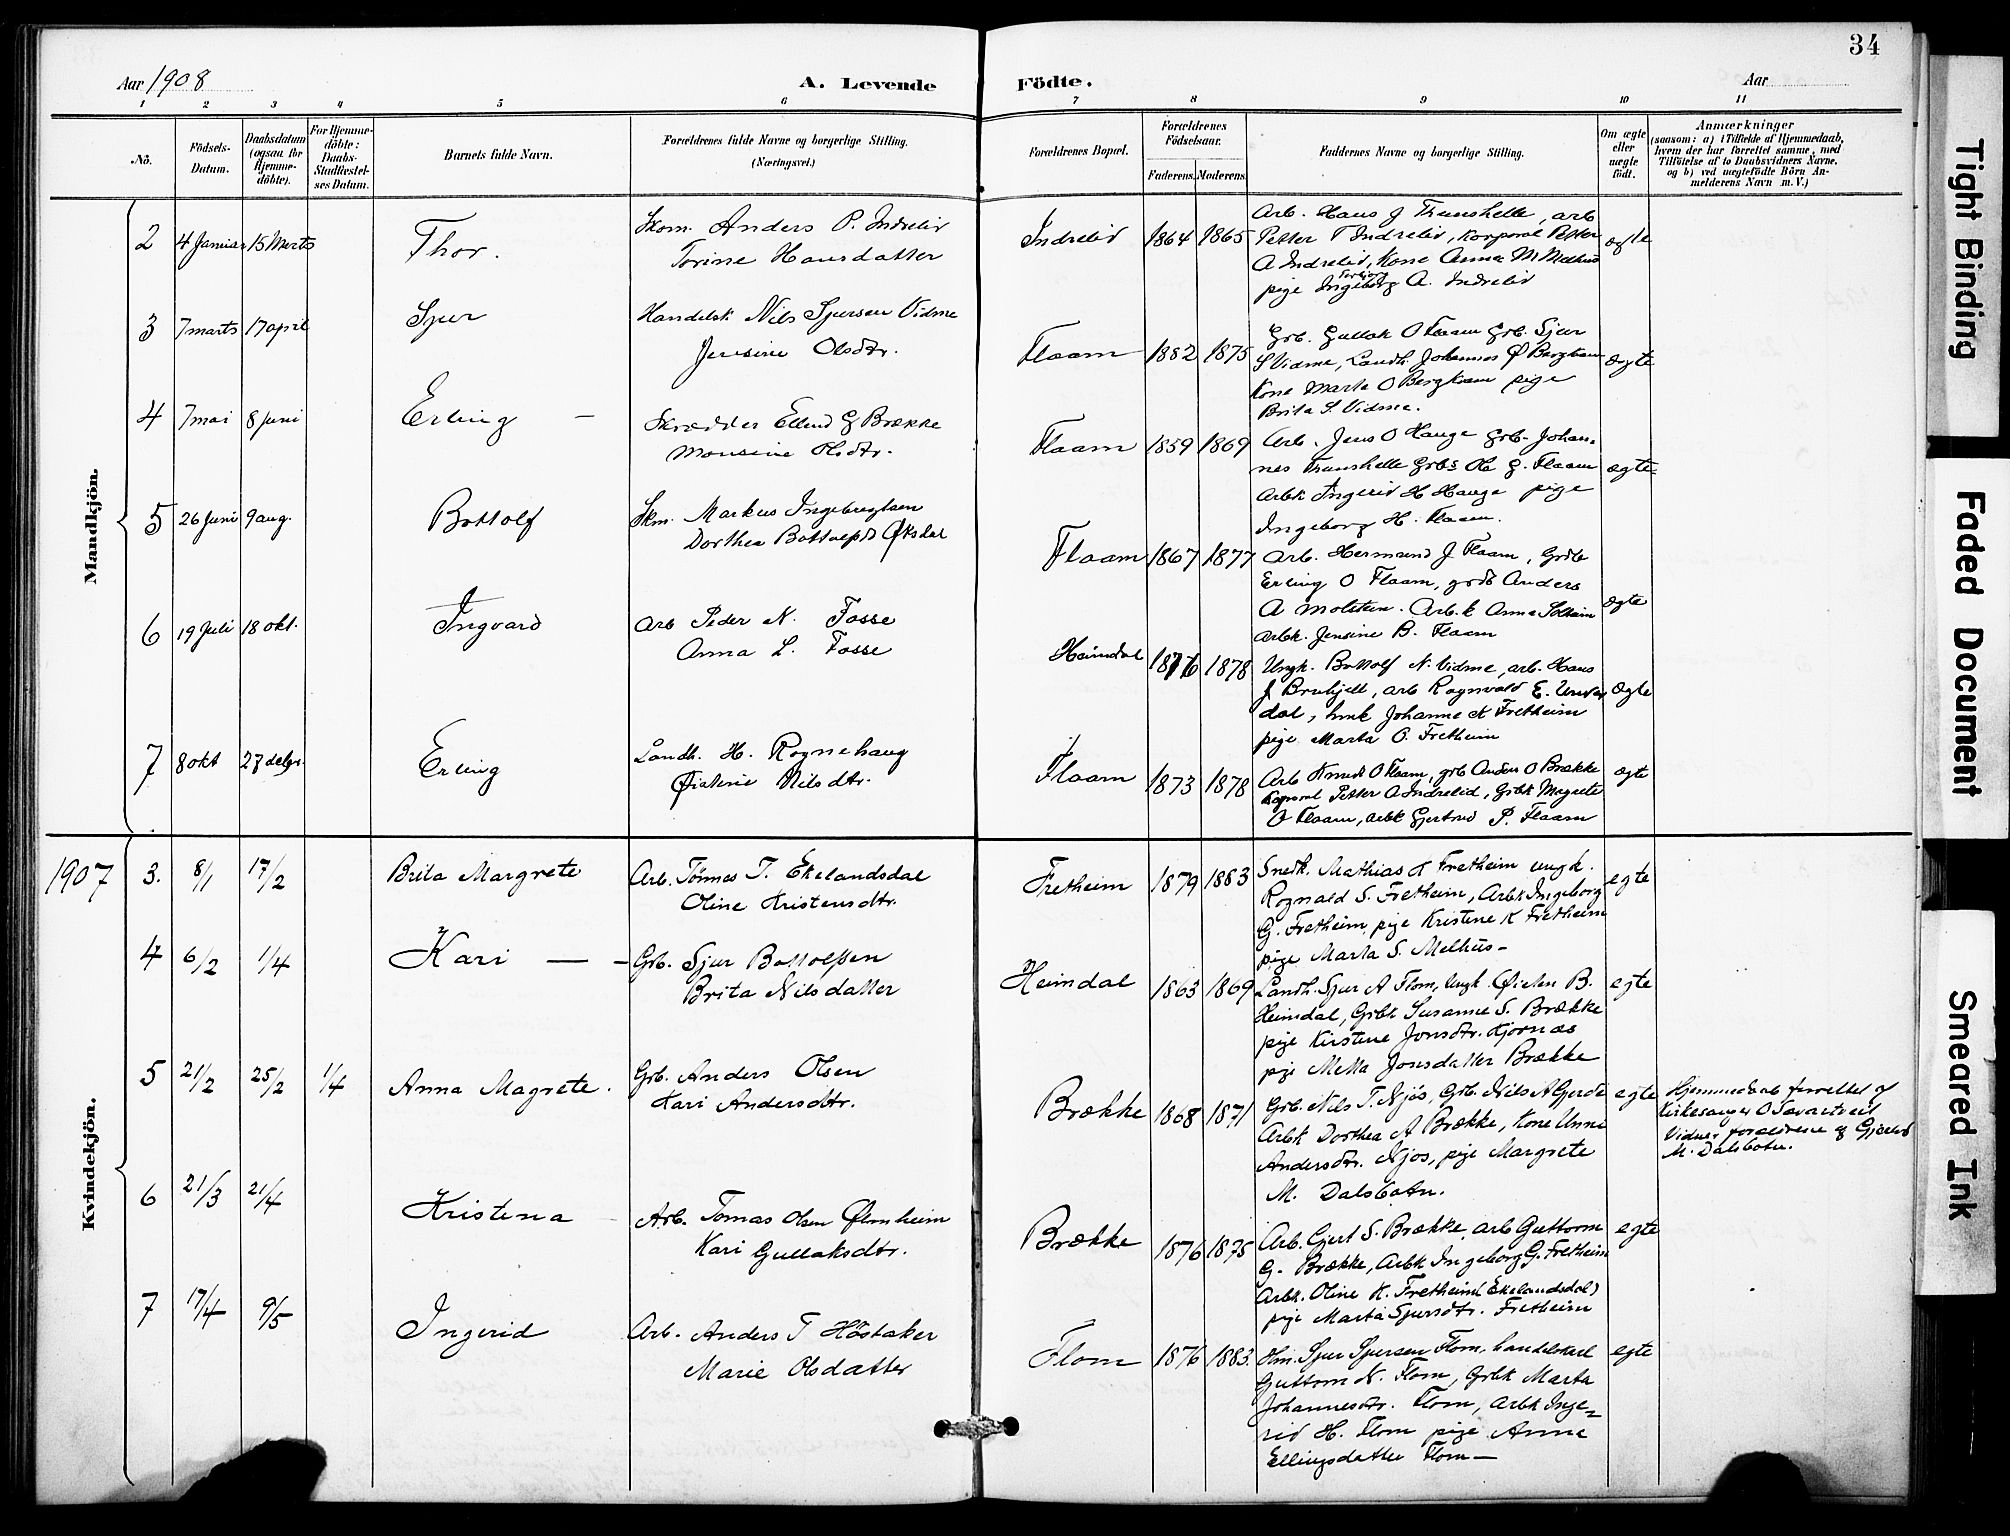 34
Aar 1908
A. Levende
Födte.
Aar
1 2 3 4 5 6 7 8 9 10 11
No.
Födsels-Datum.
Daabsdatum (ogsaa for Hjemme-döbte).
For Hjemme-döbte: Daabs-Stadfæstel-ses Datum.
Barnets fulde Navn.
Forældrenes fulde Navne og borgerlige Stilling. (Næringsvei.)
Forældrenes Bopæl.
Forældrenes Födselsaar.
Faderens. Moderens.
Faddernes Navne og borgerlige Stilling.
Om ægte eller uægte födt.
Anmærkninger
(saasom: a) i Tilfælde af Hjemmedaab,
hvem der har forrettet samme, med
Tilföielse af to Daabsvidners Navne,
og b) ved uægtefödte Börn An-
melderens Navn m. V.)
Mandkjön.
2 4 Januar 15 Marts Thor.
Skom. Anders P. Indrelid
Torine Hansdatter
Indrelid 1864 1865
Arb. Hans J Trunshelle, arb
Petter T Indrelid, Korporal Petter
A Indrelid, Kone Anna M Melhus
pige Ingeborg A. Indrelid
ægte
3 7 marts 17 april Sjur
Handelsk Nils Sjursen Vidme
Jensine Olsdtr.
Flaam 1882 1875
Grb. Gullak O Flaam Grb. Sjur
S Vidme, Landh. Johannes Ø Bergkvam
Kone Marta O Bergkvam pige
Brita S. Vidme.
ægte
4 7 mai 8 juni Erling
Skrædder Ellend G Brække
Monsine Olsdtr.
Flaam 1859 1869
Arb. Jens O Hauge Grb. Johan-
nes Trunshelle Grbs Ole G. Flaam
Arbk Ingerid H Hauge pige
Ingeborg H. Flaam.
ægte
5 26 Juni 9 aug. Bottolf
Skm. Markus Ingebregtsen
Dorthea Bottolfsd Øksdal
Flaam 1867 1877
Arb. Hermund J. Flaam, Grdb
Erling O Flaam, grdb Anders
A Molstun. Arb.k Anna Solheim
Arbk. Jensine B. Flaam
ægte
6 19 Juli 18 okt. Ingvard
Arb Peder N. Fosse
Anna L. Fosse
Heimdal 1876 1878
Ungk. Bottolf N. Vidme, arb. Hans
J Bruhjell, arb Ragnvald E. Under
dal, hmk Johanne K Fretheim
pige Marta O. Fretheim
ægte
7 8 okt Erling
Landh. H. Rognehaug
Øistine Nilsdtr.
Flaam 1873 1878
Arb Knut O Flaam, grb Anders O Brække
Korporal Petter A Indrelid, Grbk Magrete
O Flaam, arbk Gjertrud P. Flaam
ægte
1907
Kvindekjön.
3. 8/1 17/2 Brita Margrete
Arb. Tönnes T. Ekelandsdal
Oline Kristensdtr.
Fretheim 1879 1883
Snedk. Mathias K Fretheim ungk.
Rognald S. Fretheim, Arbk Ingeborg
G. Fretheim, pige Kristene K Fretheim
pige Marta S. Melhus -
egte
4 6/2 1/4 Kari
Grb. Sjur Bottolfsen
Brita Nilsdatter
Heimdal 1863 1869
Landh. Sjur A Flom, Ungk. Øisten B.
Heimdal, Grbk Susanne S. Brække
pige Kirstene Jonsdtr. Kjornæs
pige Metta Jonsdatter Brække
egte
5 21/2 25/2 1/4 Anna Magrete.
Grb. Anders Olsen
Kari Andersdtr.
Brække 1868 1871
Grb. Nils T. Njös, Grb. Nils A Gjerde
Arbk Dorthea A Brække, Kone Unni
Andersdtr. Njos, pige Margrete
M. Dalsbotn.
egte
Hjemmedaab forrettet af
Kirkesanger O Savartveit
Vidner forældrene og
M. Dalsbotn.
6 21/3 21/4 Kristena
Arb. Tomas Olsen Ølmheim
Kari Gullaksdtr.
Brække 1876 1875
Arb. Gjert S. Brække, arb Guttorm
G. Brække, Arbk Ingeborg G. Fretheim
Arbk. Oline K. Fretheim (Ekelandsdal)
pige Marta Sjursdtr. Fretheim
egte
7 17/4 9/5 Ingerid
Arb. Anders T Höstaker
Marie Olsdatter
Flom 1876 1883.
Hm. Sjur Sjursen Flom, handelskarl
Guttorm N. Flom, Grbk Marta
Johannesdtr. Flom, Arbk Inge-
rid H. Flom pige Anna
Ellingsdatter Flom -
egte
Tight Binding
Faded Document
Smeared Ink